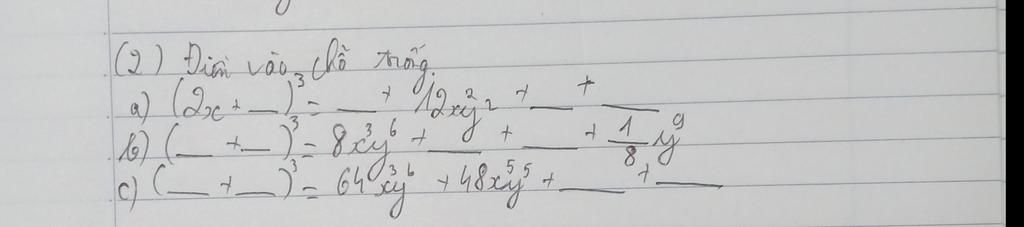 (2) Điền vào chỗ trống.
a) (2x + __)³ = __ + 12x²y² + __ + __
b) (__ + __)³ = 8x³y⁶ + __ + __ + 1/8 y⁹
c) (__ + __)³ = 64x³y⁶ + 48x⁵y⁵ + __ + __